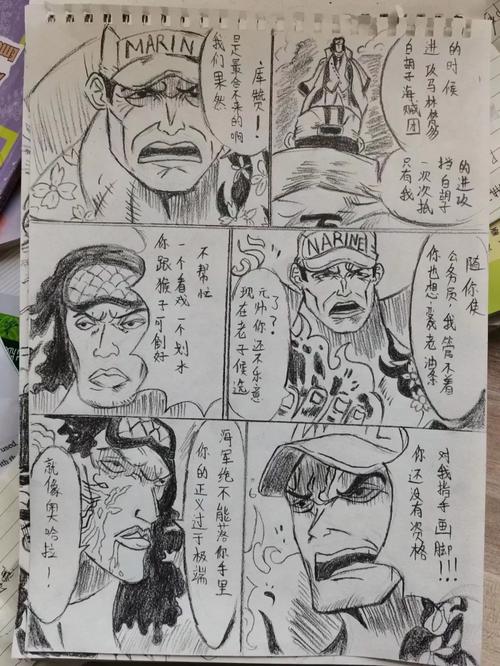 MARIN
我们果然
是最合不来的啊
库赞！
白胡子海贼团
进攻马林梵多
的时候
只有我
一次次抵
挡白胡子
的进攻
你跟猴子可倒好
一个看戏一个划水
不帮忙
MARINE
现在老子候选
元帅你还不乐意
了？
你也想老油条
公务员，我管不着
随你便
就像奥哈拉！
你的正义过于极端
海军绝不能落你手里
你还没有资格
对我指手画脚!!!